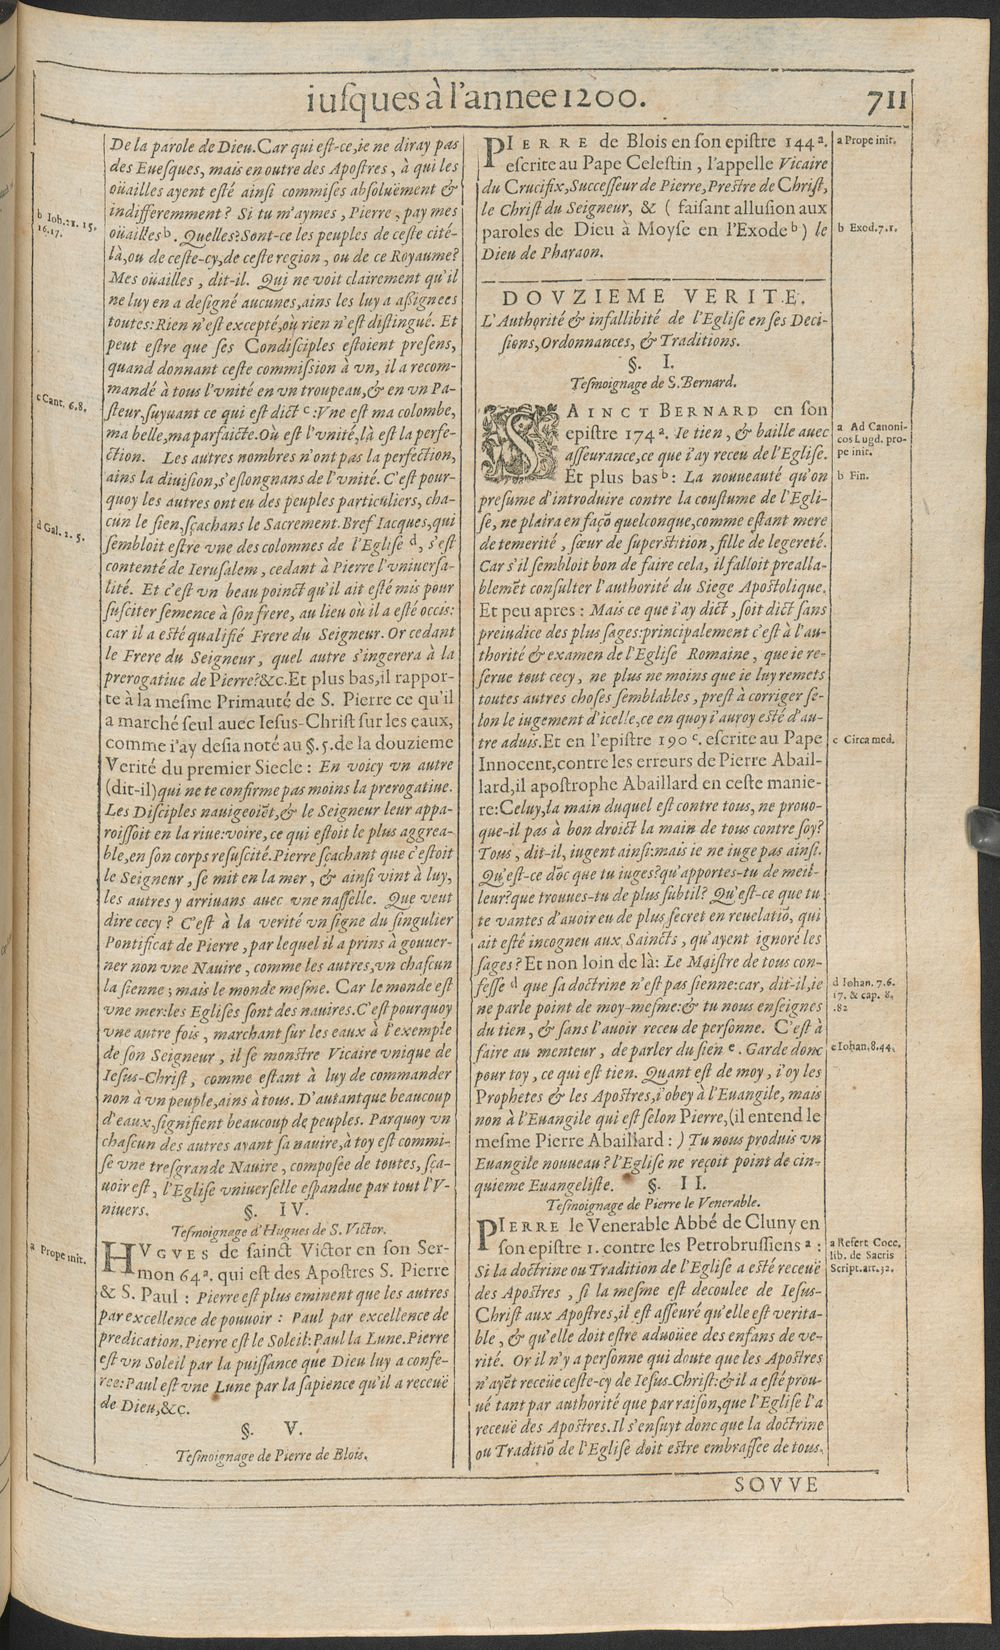 iuſques à l'annee 1200.
711
De la parole de Dieu. Car qui eſt-ce, ie ne diray pas
des Eueſques, mais en outre des Apoſtres, à qui les
oüailles ayent eſté ainſi commiſes abſoluëment &
indifferemment? Si tu m'aymes, Pierre, pay mes
oüailles b. Quelles? Sont-ce les peuples de ceſte cité-
là, ou de ceſte-cy, de ceſte region, ou de ce Royaume?
Mes oüailles, dit-il. Qui ne voit clairement qu'il
ne luy en a deſigné aucunes, ains les luy a aßignees
toutes: Rien n'eſt excepté, où rien n'eſt diſtingué. Et
peut eſtre que ſes Condiſciples eſtoient preſens,
quand donnant ceſte commiſſion à vn, il a recom-
mandé à tous l'vnité en vn troupeau, & en vn Pa-
ſteur, ſuyuant ce qui eſt dict c: Vne eſt ma colombe,
ma belle, ma parfaicte. Où eſt l'vnité, là eſt la perfe-
ction. Les autres nombres n'ont pas la perfection,
ains la diuiſion, s'eſlongnans de l'vnité. C'eſt pour-
quoy les autres ont eu des peuples particuliers, cha-
cun le ſien, ſçachans le Sacrement. Bref Iacques, qui
ſembloit eſtre vne des colomnes de l'Egliſe d, s'eſt
contenté de Ieruſalem, cedant à Pierre l'vniuerſa-
lité. Et c'eſt vn beau poinct qu'il ait eſté mis pour
ſuſciter ſemence à ſon frere, au lieu où il a eſté occis:
car il a eſté qualifié Frere du Seigneur. Or cedant
le Frere du Seigneur, quel autre s'ingerera à la
prerogatiue de Pierre? &c. Et plus bas, il rappor-
te à la meſme Primauté de S. Pierre ce qu'il
a marché ſeul auec Ieſus-Chriſt ſur les eaux,
comme i'ay deſia noté au §. 5. de la douzieme
Verité du premier Siecle: En voicy vn autre
(dit-il) qui ne te confirme pas moins la prerogatiue.
Les Diſciples nauigeoiẽt, & le Seigneur leur appa-
roiſſoit en la riue: voire, ce qui eſtoit le plus aggrea-
ble, en ſon corps reſuſcité. Pierre ſçachant que c'eſtoit
le Seigneur, ſe mit en la mer, & ainſi vint à luy,
les autres y arriuans auec vne naſſelle. Que veut
dire cecy? C'eſt à la verité vn ſigne du ſingulier
Pontificat de Pierre, par lequel il a prins à gouuer-
ner non vne Nauire, comme les autres, vn chaſcun
la ſienne; mais le monde meſme. Car le monde eſt
vne mer: les Egliſes ſont des nauires. C'eſt pourquoy
vne autre fois, marchant ſur les eaux à l'exemple
de ſon Seigneur, il ſe monſtre Vicaire vnique de
Ieſus-Chriſt, comme eſtant à luy de commander
non à vn peuple, ains à tous. D'autant que beaucoup
d'eaux, ſignifient beaucoup de peuples. Parquoy vn
chaſcun des autres ayant ſa nauire, à toy eſt commi-
ſe vne treſgrande Nauire, compoſée de toutes, ſça-
uoir eſt, l'Egliſe vniuerſelle eſpandue par tout l'V-
niuers. §. IV.
Teſmoignage d'Hugues de S. Victor.
HVGVES de ſainct Victor en ſon Ser-
mon 64 a. qui eſt des Apoſtres S. Pierre
& S. Paul: Pierre eſt plus eminent que les autres
par excellence de pouuoir: Paul par excellence de
predication. Pierre eſt le Soleil: Paul la Lune. Pierre
eſt vn Soleil par la puiſſance que Dieu luy a confe-
ree: Paul eſt vne Lune par la ſapience qu'il a receuë
de Dieu, &c.
§. V.
Teſmoignage de Pierre de Blois.
b Ioh. 21. 15.
16. 17.
c Cant. 6. 8.
d Gal. 2. 5.
a Prope init.
PIERRE de Blois en ſon epiſtre 144 a.
eſcrite au Pape Celeſtin, l'appelle Vicaire
du Crucifix, Succeſſeur de Pierre, Preſtre de Chriſt,
le Chriſt du Seigneur, & (faiſant alluſion aux
paroles de Dieu à Moyſe en l'Exode b) le
Dieu de Pharaon.
DOVZIEME VERITE.
L'Authorité & infallibité de l'Egliſe en ſes Deci-
ſions, Ordonnances, & Traditions.
§. I.
Teſmoignage de S. Bernard.
SAINCT BERNARD en ſon
epiſtre 174 a. Ie tien, & baille auec
aſſeurance, ce que i'ay receu de l'Egliſe.
Et plus bas b: La nouueauté qu'on
preſume d'introduire contre la couſtume de l'Egli-
ſe, ne plaira en façõ quelconque, comme eſtant mere
de temerité, ſœur de ſuperſtition, fille de legereté.
Car s'il ſembloit bon de faire cela, il falloit prealla-
blemẽt conſulter l'authorité du Siege Apoſtolique.
Et peu apres: Mais ce que i'ay dict, ſoit dict ſans
preiudice des plus ſages: principalement c'eſt à l'au-
thorité & examen de l'Egliſe Romaine, que ie re-
ſerue tout cecy, ne plus ne moins que ie luy remets
toutes autres choſes ſemblables, preſt à corriger ſe-
lon le iugement d'icelle, ce en quoy i'auroy eſté d'au-
tre aduis. Et en l'epiſtre 190 c. eſcrite au Pape
Innocent, contre les erreurs de Pierre Abail-
lard, il apoſtrophe Abaillard en ceſte manie-
re: Celuy, la main duquel eſt contre tous, ne prouo-
que-il pas à bon droict la main de tous contre ſoy?
Tous, dit-il, iugent ainſi: mais ie ne iuge pas ainſi.
Qu'eſt-ce dõc que tu iuges? qu'apportes-tu de meil-
leur? que trouues-tu de plus ſubtil? Qu'eſt-ce que tu
te vantes d'auoir eu de plus ſecret en reuelatiõ, qui
ait eſté incogneu aux Saincts, qu'ayent ignoré les
ſages? Et non loin de là: Le Maiſtre de tous con-
feſſe d que ſa doctrine n'eſt pas ſienne: car, dit-il, ie
ne parle point de moy-meſme: & tu nous enſeignes
du tien, & ſans l'auoir receu de perſonne. C'eſt à
faire au menteur, de parler du ſien e. Garde donc
pour toy, ce qui eſt tien. Quant eſt de moy, i'oy les
Prophetes & les Apoſtres, i'obey à l'Euangile, mais
non à l'Euangile qui eſt ſelon Pierre, (il entend le
meſme Pierre Abaillard:) Tu nous produis vn
Euangile nouueau? l'Egliſe ne reçoit point de cin-
quieme Euangeliſte. §. II.
Teſmoignage de Pierre le Venerable.
PIERRE le Venerable Abbé de Cluny en
ſon epiſtre 1. contre les Petrobruſſiens a:
Si la doctrine ou Tradition de l'Egliſe a eſté receuë
des Apoſtres, ſi la meſme eſt decoulee de Ieſus-
Chriſt aux Apoſtres, il eſt aſſeuré qu'elle eſt verita-
ble, & qu'elle doit eſtre aduoüee des enfans de ve-
rité. Or il n'y a perſonne qui doute que les Apoſtres
n'ayẽt receüe ceſte-cy de Ieſus-Chriſt: & il a eſté prou-
ué tant par authorité que par raiſon, que l'Egliſe l'a
receuë des Apoſtres. Il s'enſuyt donc que la doctrine
ou Traditiõ de l'Egliſe doit eſtre embraſſee de tous.
a Prope init.
b Exod. 7. 1.
a Ad Canoni-
cos Lugd. pro-
pe init.
b Fin.
c Circa med.
d Iohan. 7. 6.
17. & cap. 8.
.82
e Iohan. 8. 44.
a Refert Cocc.
lib. de Sacris
Script. art. 32.
SOVVE